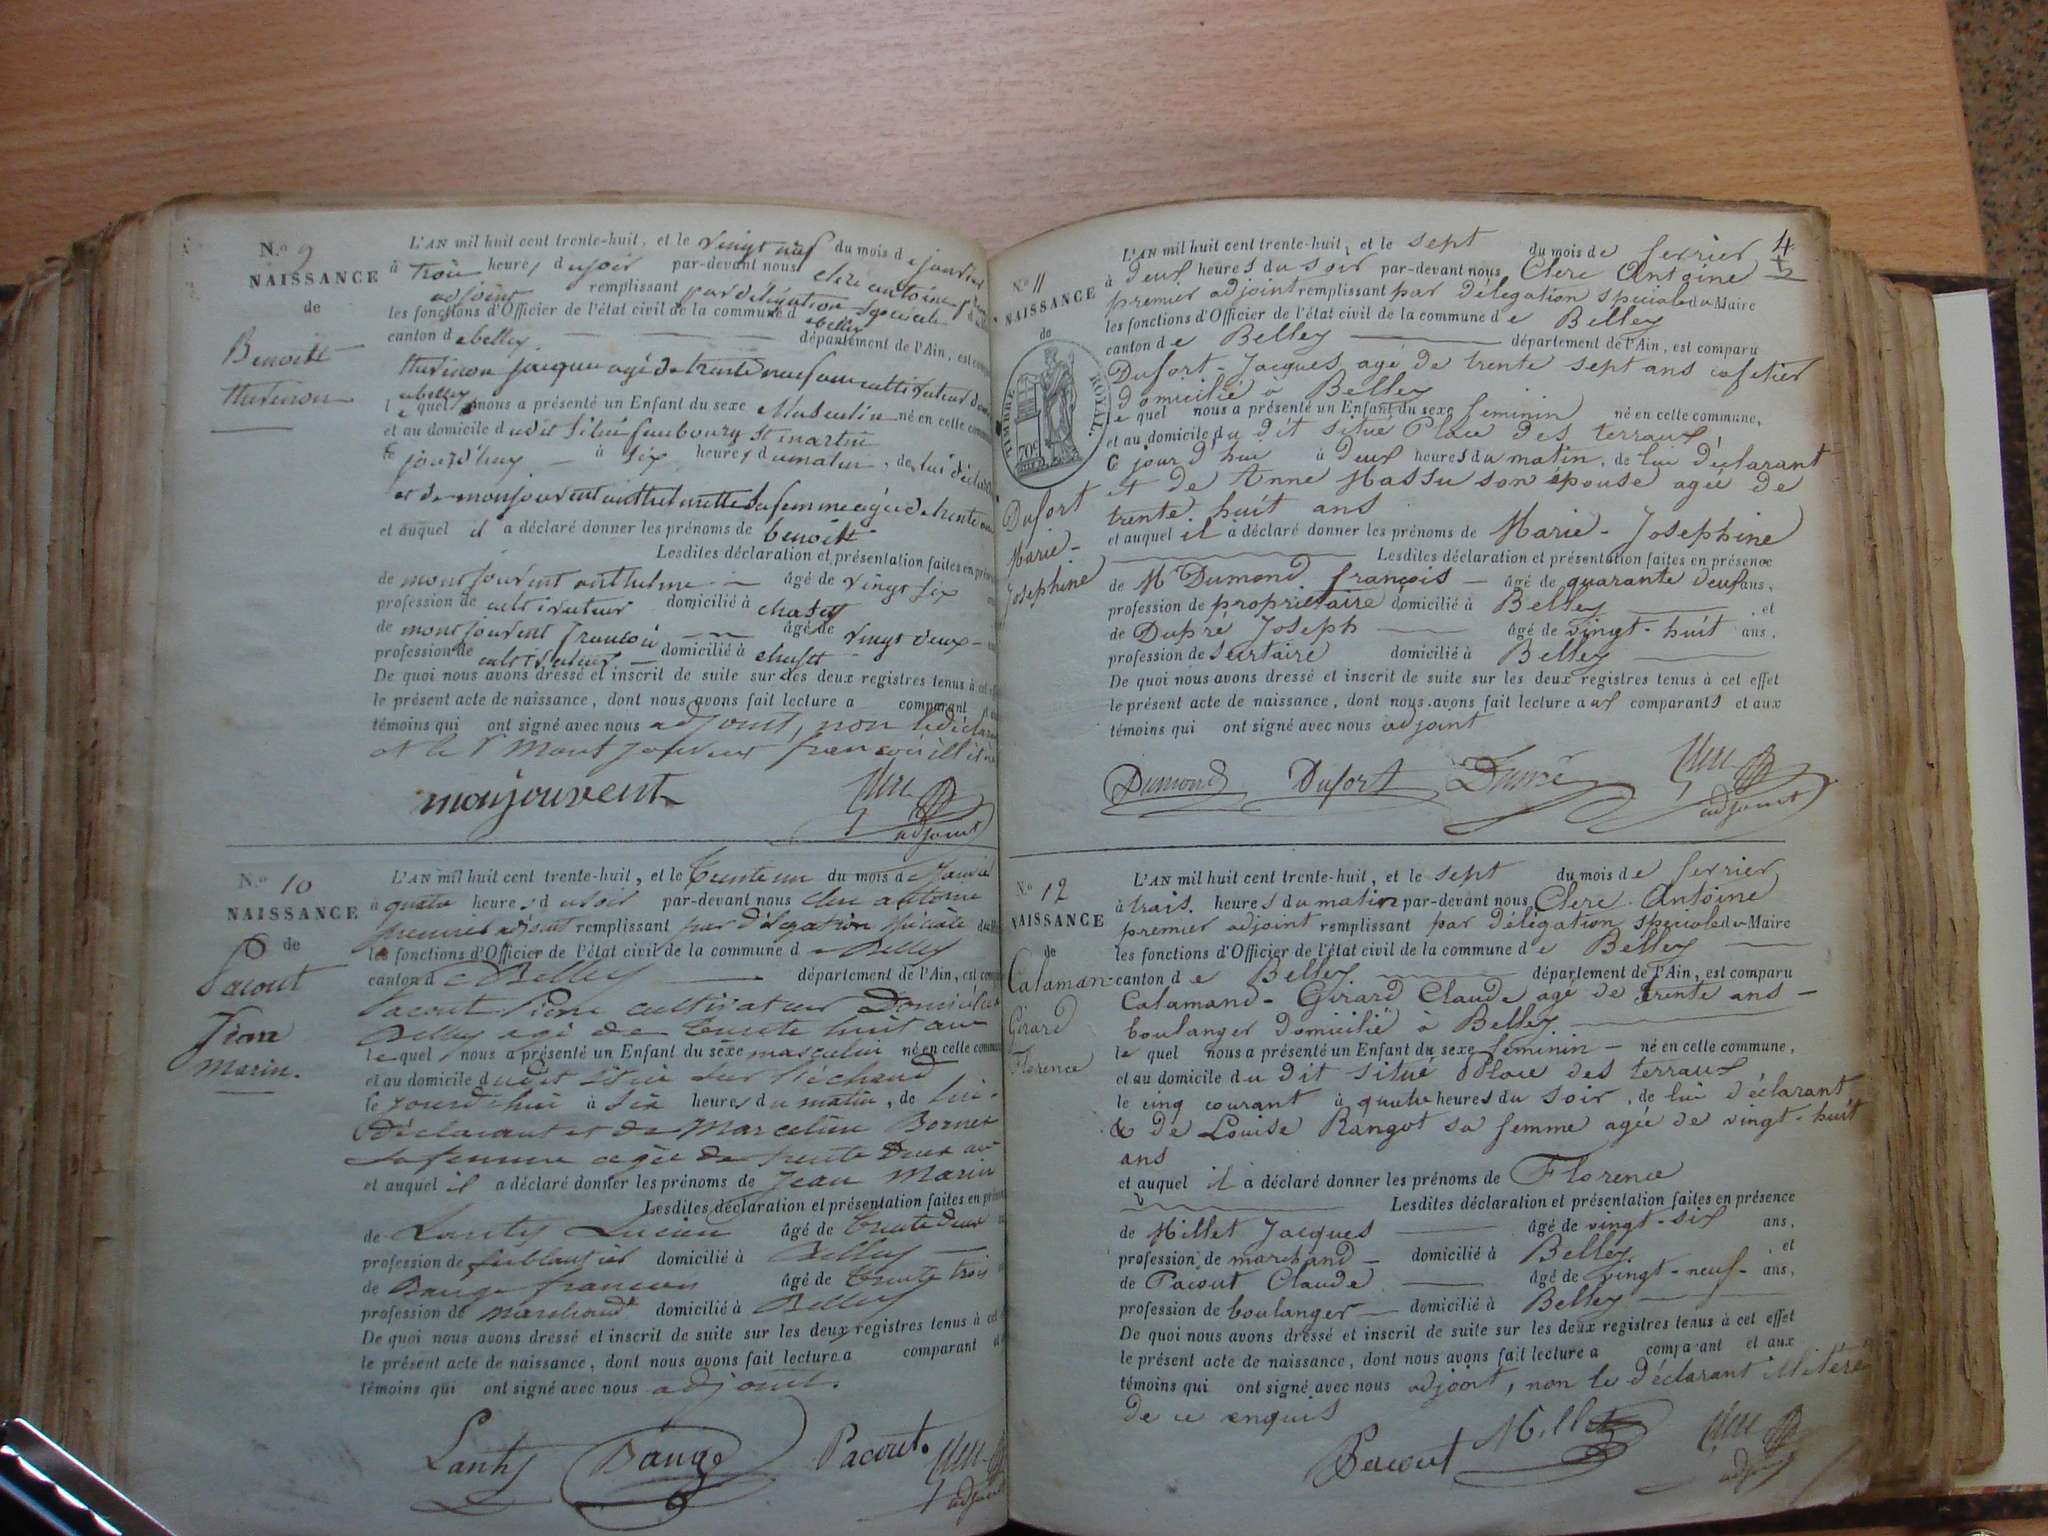 N.o 9
NAISSANCE
de
Benoitt
L'AN mil huit cent trente-huit, et le vingt neuf du mois de janvier
à trois heures du soir par-devant nous Clerc antoine
adjoint remplissant par délégation speciale
les fonctions d'Officier de l'état civil de la commune de belley
canton de belley département de l'Ain, est
jacques agé de trente neuf ans cultivateur
belley
lequel nous a présenté un Enfant du sexe Masculin né en cette
et au domicile dudit situé faubourg St martin
ce jourd'huy à six heures du matin, de lui
et de montjouvent anthelmette sa femme agée de trente
et auquel il a déclaré donner les prénoms de benoitt
Lesdites déclaration et présentation faites en
de montjouvent anthelme âgé de vingt six
profession de cultivateur domicilié à
de montjouvent francois âgé de vingt deux
profession de cultivateur domicilié à
De quoi nous avons dressé et inscrit de suite sur les deux registres tenus à cet
le présent acte de naissance, dont nous avons fait lecture a comparant
témoins qui ont signé avec nous adjoint, non le
et le Sr Montjouvent francois
monjouvent Clerc
adjoint
N.o 10
NAISSANCE
de
Pacout
Jean
Marin.
L'AN mil huit cent trente-huit, et le trente un du mois de Janvier
à quatre heures du soir par-devant nous Clerc antoine
premier adjoint remplissant par délégation speciale
les fonctions d'Officier de l'état civil de la commune de Belley
canton de Belley département de l'Ain, est
Pacout Pierre cultivateur Domicilié
Belley agé de trente huit ans
lequel nous a présenté un Enfant du sexe masculin né en cette
et au domicile dudit situé sur
ce jourd'hui à six heures du matin, de lui
déclarant et de Marceline Bornet
sa femme agée de trente Deux ans
et auquel il a déclaré donner les prénoms de Jean Marin
Lesdites déclaration et présentation faites en
de Lanty Lucien âgé de trente deux
profession de ferblantier domicilié à Belley
de Bauge francois âgé de trente trois
profession de marchand domicilié à Belley
De quoi nous avons dressé et inscrit de suite sur les deux registres tenus à cet
le présent acte de naissance, dont nous avons fait lecture a comparant
témoins qui ont signé avec nous adjoint.
Lanty Bauge Pacout. Clerc
adjoint
4
N.o 11
NAISSANCE
de
TIMBRE ROYAL.
70c
Dufort
Marie-
Josephine
L'AN mil huit cent trente-huit, et le sept du mois de fevrier
à deux heures du soir par-devant nous Clerc Antoine
premier adjoint remplissant par délegation speciale du Maire
les fonctions d'Officier de l'état civil de la commune de Belley
canton de Belley département de l'Ain, est comparu
Dufort-Jacques agé de trente sept ans cafetier
domicilié à Belley
lequel nous a présenté un Enfant du sexe feminin né en cette commune,
et au domicile du dit situé Place des terraux
ce jour d'hui à deux heures du matin, de lui déclarant
et de Anne Massu son épouse agée de
trente huit ans
et auquel il a déclaré donner les prénoms de Marie-Josephine
Lesdites déclaration et présentation faites en présence
de Mr Dumond françois âgé de quarante deux ans,
profession de propriétaire domicilié à Belley, et
de Dupré Joseph âgé de vingt-huit ans,
profession de domicilié à Belley
De quoi nous avons dressé et inscrit de suite sur les deux registres tenus à cet effet
le présent acte de naissance, dont nous avons fait lecture aux comparants et aux
témoins qui ont signé avec nous adjoint
Dumond Dufort Dupré Clerc
adjoint
N.o 12
NAISSANCE
de
Calaman-
Girard
Florence
L'AN mil huit cent trente-huit, et le sept du mois de fevrier
à trois heures du matin par-devant nous Clerc Antoine
premier adjoint remplissant par délégation speciale du Maire
les fonctions d'Officier de l'état civil de la commune de Belley
canton de Belley département de l'Ain, est comparu
Calamand-Girard Claude agé de trente ans
boulanger domicilié à Belley
lequel nous a présenté un Enfant du sexe feminin né en cette commune,
et au domicile du dit situé Place des terraux
le cinq courant à quatre heures du soir, de lui déclarant
& de Louise Rangot sa femme agée de vingt-huit
ans
et auquel il a déclaré donner les prénoms de Florence
Lesdites déclaration et présentation faites en présence
de Millet Jacques âgé de vingt-six ans,
profession de marchand domicilié à Belley, et
de Pacout Claude âgé de vingt-neuf ans,
profession de boulanger domicilié à Belley
De quoi nous avons dressé et inscrit de suite sur les deux registres tenus à cet effet
le présent acte de naissance, dont nous avons fait lecture a comparant et aux
témoins qui ont signé avec nous adjoint, non le déclarant
de ce enquis
Pacout Millet Clerc
adjoint